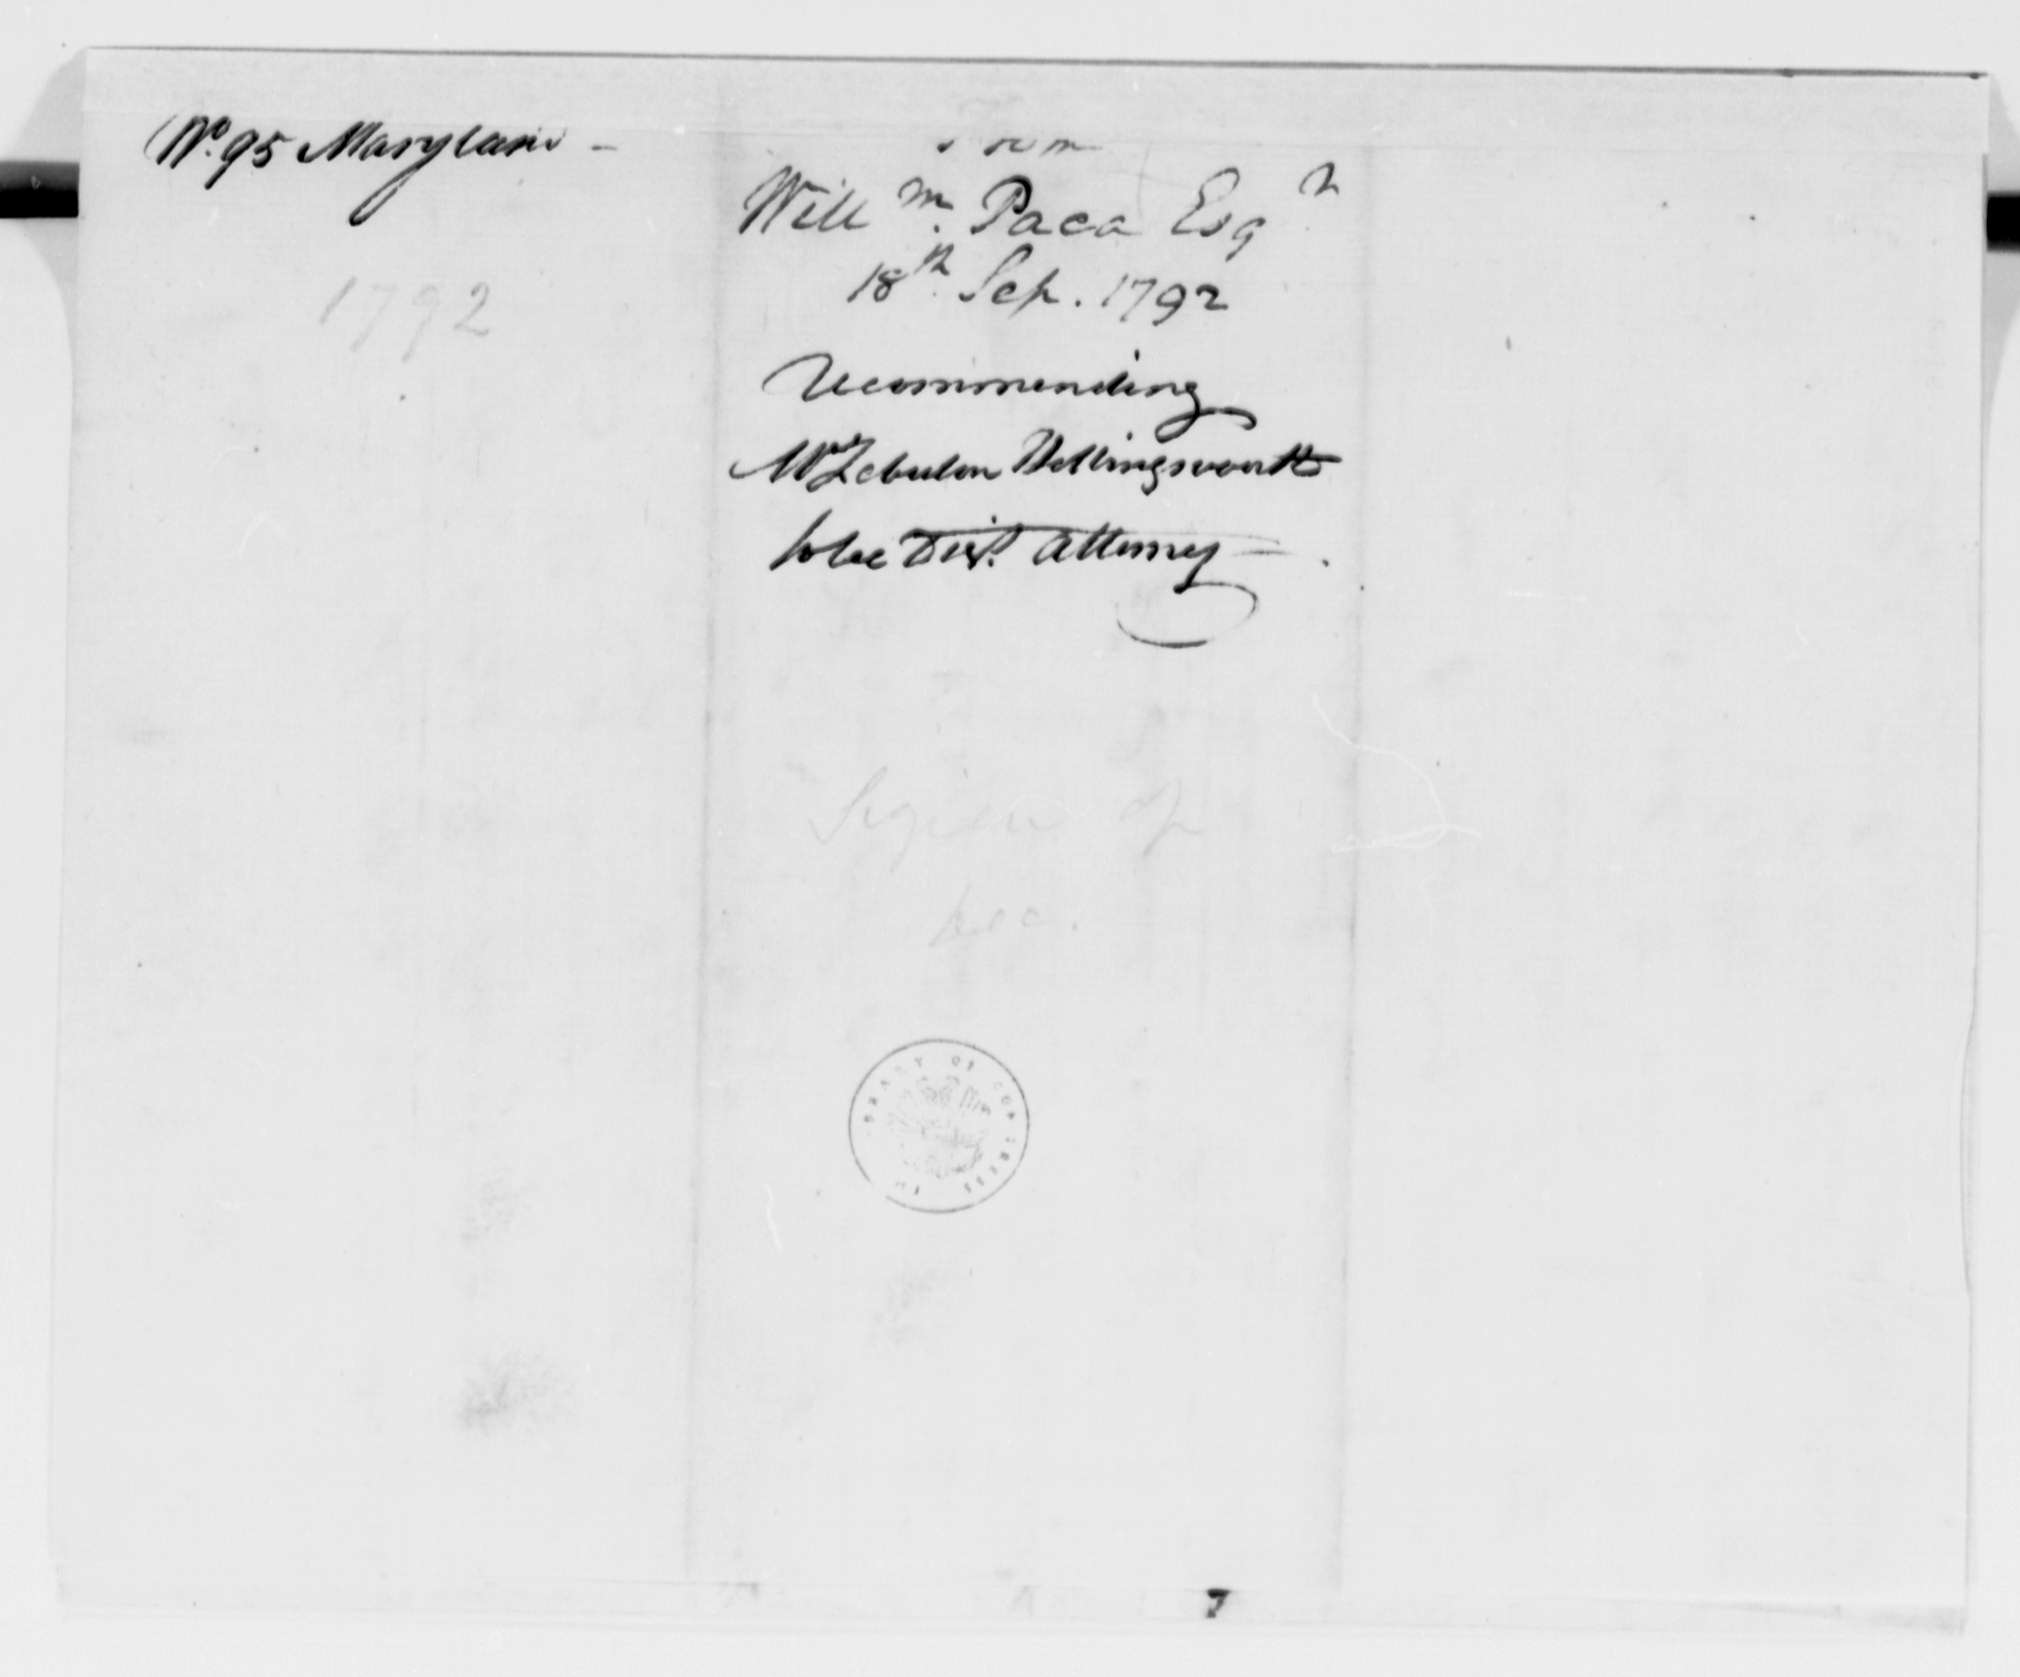 No. 95 Maryland -
1792
From
Willm. Paca Esqr
18th. Sep. 1792
recommending
Mr Zebulon Hollingsworth
to be Dist. Attorney
LIBRARY OF CONGRESS